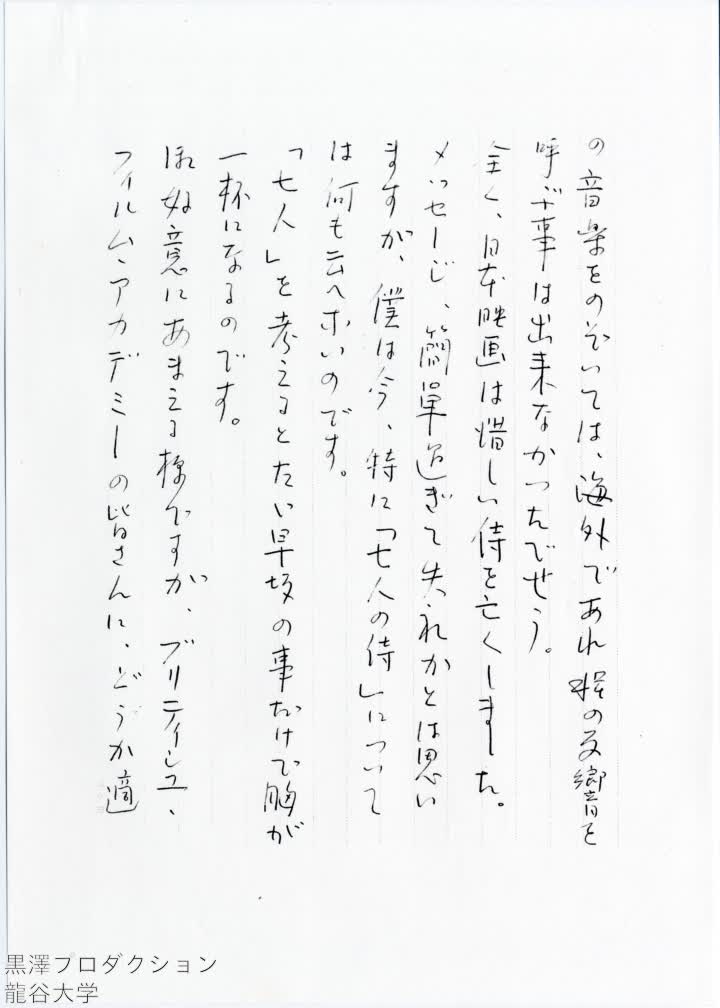 の音楽をのぞいては、海外であれ程の反響を
呼ぶ事は出来なかったでせう。
全く、日本映画は惜しい侍を亡くしました。
メッセージ、簡単過ぎて失礼かとは思い
ますが、僕は今、特に「七人の侍」について
は何も云へないのです。
「七人」を考えるとたい早坂の事だけで胸が
一杯になるのです。
意にあまえる様ですが、ブリティシュ、
フィルム・アカデミーの皆さんに、どうか適
黒澤プロダクション
龍谷大学